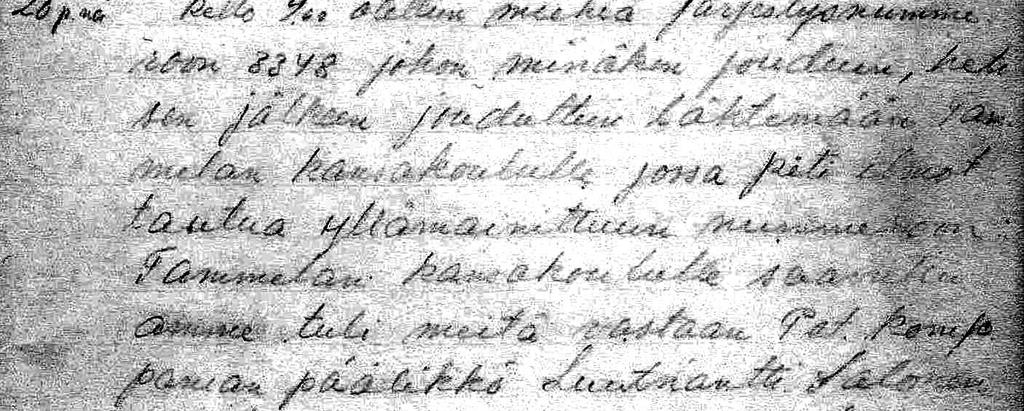 20 p.nä kello 9⁰⁰ otettiin miehiä järjestysnumme
roon 3348 johon minäkin jouduin, heti
sen jälkeen jouduttiin lähtemään Tam
melan kansakoululle jossa piti ilmot
tautua yllämainittuun nummeroon.
Tammelan kansakoululle saavuttu
amme tuli meitä vastaan Pat. komp
panian päälikkö Luutnantti Salonen